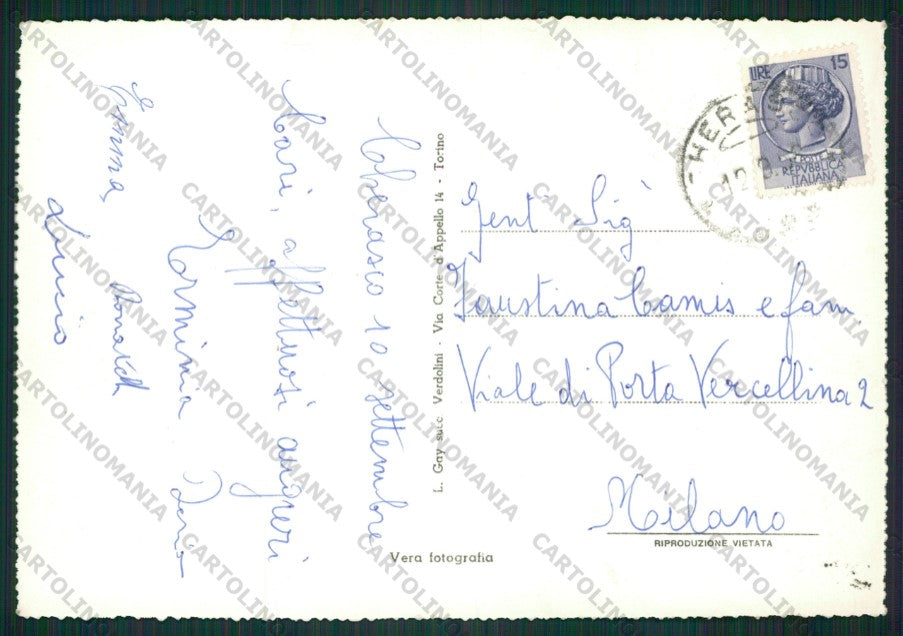 Cherasco 10 settembre
Cari, affettuosi auguri
Erminia Dario
Emma, Donatella
Lucio
L. Gay succ. Verdolini - Via Corte d'Appello 14 - Torino
Vera fotografia
LIRE 15
POSTE
REPVBBLICA
ITALIANA
CHERASCO
Gent Sig
Faustina Camis e fam.
Viale di Porta Vercellina 2
Milano
RIPRODUZIONE VIETATA
CARTOLINOMANIA